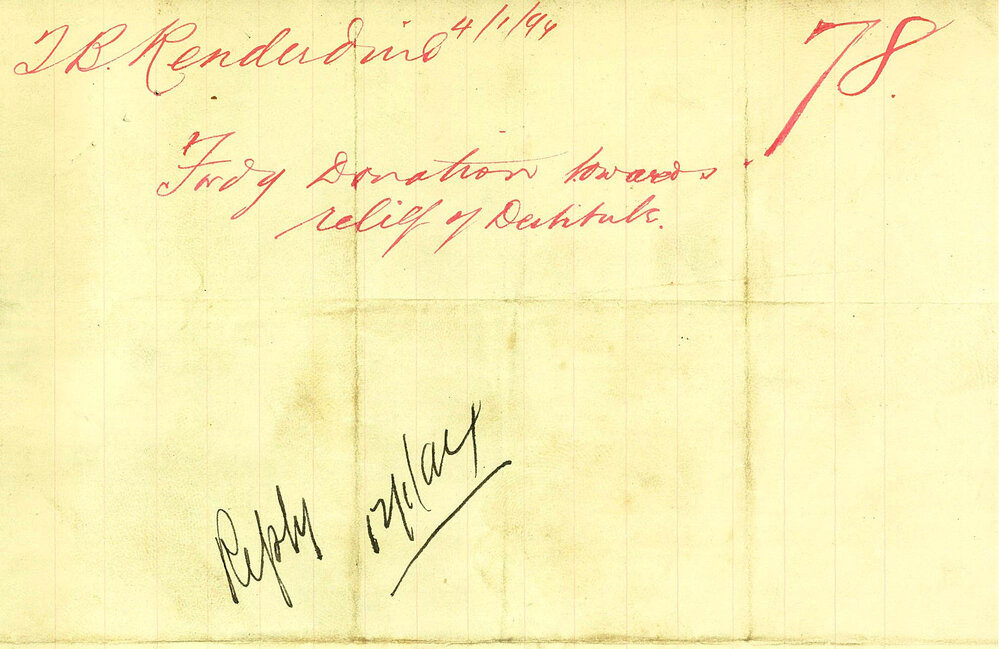 T B. Renderdine 4/1/94
78.
Fwdg Donation towards
relief of Destitute.
Reply 12/1/94